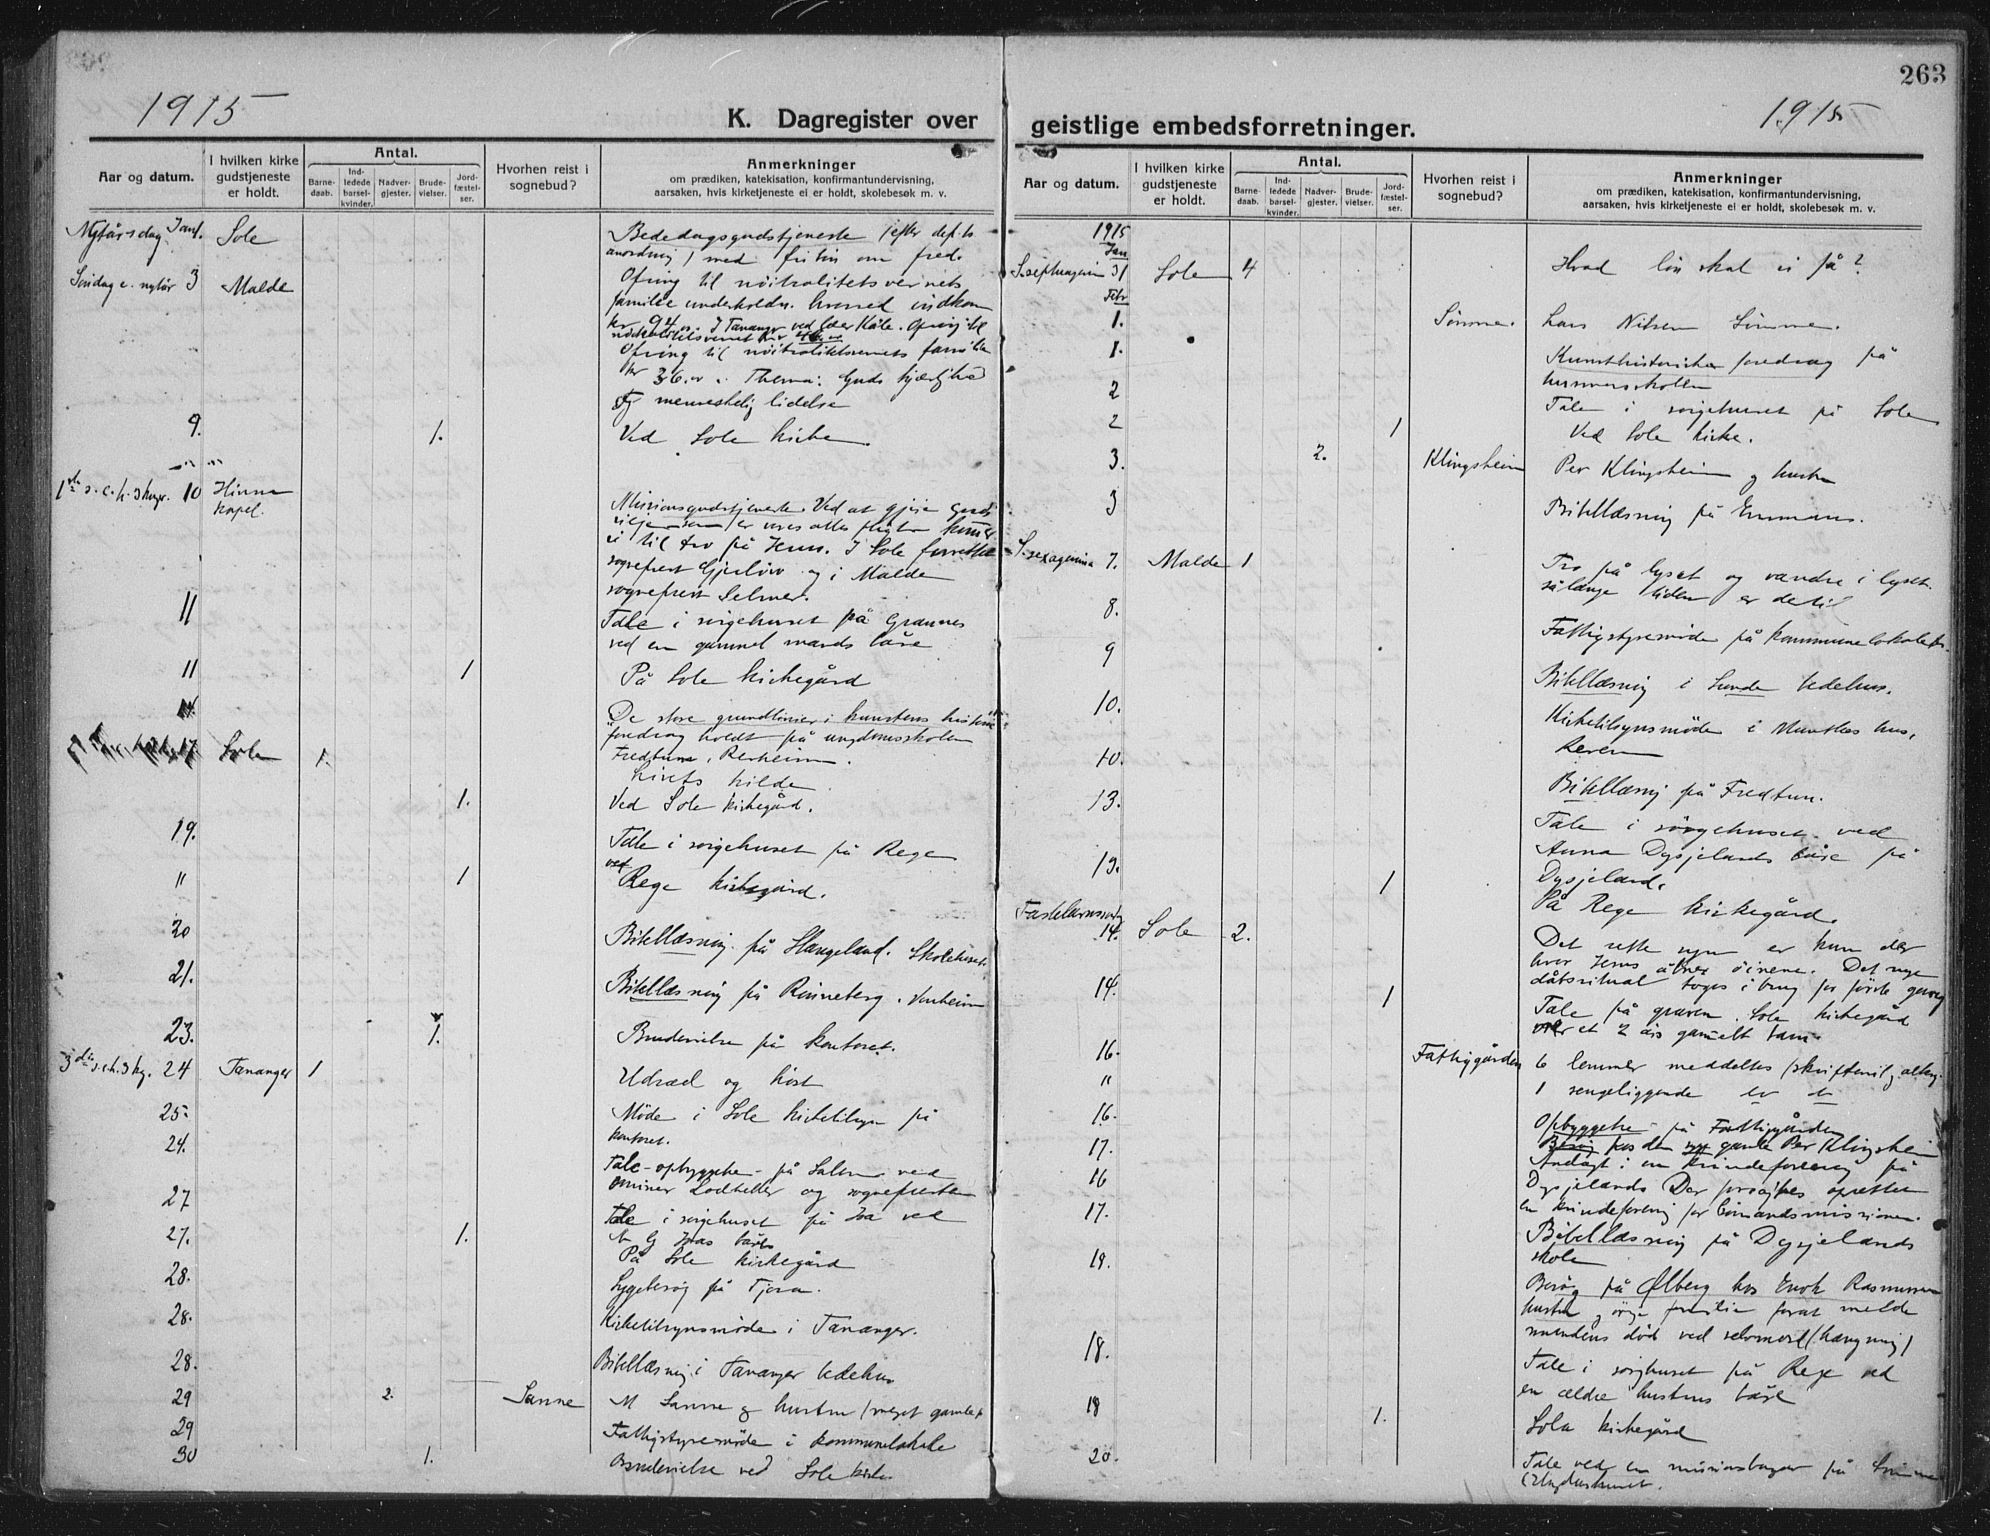 263
1915
1915
K. Dagregister over
geistlige embedsforretninger.
Aar og datum.
I hvilken kirke gudstjeneste er holdt.
Antal.
Barne-daab.
Ind-ledede barsel-kvinder.
Nadver-gjester.
Brude-vielser.
Jord-fæstel-ser.
Hvorhen reist i sognebud?
Anmerkninger
om prædiken, katekisation, konfirmantundervisning,
aarsaken, hvis kirketjeneste ei er holdt, skolebesøk m. v.
Nytårsdag Jan 1. Sole Bededagsgudstjeneste (efter dept.s
anordning) med fritin om fred.
Søndag e. nytår 3 Malde Ofring til nöitralitetsvernets
familie underholdn. hvorved indkom
kr 94 I Tananger ved Kåle. Ofring til
nöitralitetsvernet kr
Ofring til nöitralitetsvernets familie
kr 36. Thema: Guds kjærlighed
og menneskelig lidelse
9. 1. Ved Sole kirke.
1ste s. e. h. 3 kngr. 10 Hinna kapel. Missionsgudstjeneste. Ved at gjøre Guds
vilje som er vores alles pligt kommer
vi til tro på Jesus. I Sole forrettet
sogneprest Gjerlöw og i Malde
sogneprest Selmer.
11 Tale i sorgehuset på Grannes
ved en gammel mands båre
11 1 På Sole kirkegård
14. "De store grundlinier i kunstens historie"
foredrag holdt på ungdomsskolen
Fredtun, Rerheim.
17 Sole 1. Livets kilde
1. Ved Sole kirkegård.
19. Tale i sorgehuset på Rege
" 1 ved Rege kirkegård.
20 Bibellæsning på Stangeland. Skolehuset.
21. Bibellæsning på Rinneberg. Vonheim
23. 1. Brudevielse på kontoret.
3die s. e. h. 3 kg. 24 Tananger 1 Udsæd og höst
25. Möde i Sole kirketilsyn på
kontoret.
24. Tale - opbyggelse - på Salem ved
Lodteller og sognepresten
27 Tale i sorgehuset på Joa ved
N G Joas båre
27. 1. På Sole kirkegård
28. Sygebesög på Tjora.
28. Kirketilsynsmöde i Tananger.
28. Bibellæsning i Tananger bedehus
29 2. Sanne M Sanne og hustru (meget gamle)
29 Fattigstyremöde i kommunelokale
30 1. Brudevielse ved Sole kirke
Aar og datum.
I hvilken kirke gudstjeneste er holdt.
Antal.
Barne-daab.
Ind-ledede barsel-kvinder.
Nadver-gjester.
Brude-vielser.
Jord-fæstel-ser.
Hvorhen reist i sognebud?
Anmerkninger
om prædiken, katekisation, konfirmantundervisning,
aarsaken, hvis kirketjeneste ei er holdt, skolebesøk m. v.
1915
Jan
S. septuagesim 31 Sole 4 Hvad lön skal vi få?
Febr
1. Sömme. Lars Nilsen Sömme.
1. Kunsthistoriker foredrag på
husmorskolen
2 Tale i sorgehuset på Sole
2 1 Ved Sole kirke.
3. 2. Klingsheim Per Klingsheim og hustru
3 Bibellæsning på Emmaus.
S. sexagesima 7. Malde 1 Tro på lyset og vandre i lyset
sålænge tiden er dertil
8. Fattigstyremöde på kommunelokalet.
9 Bibellæsning i Sunde bedehus.
10. Kirketilsynsmöde i Munthes hus,
Reven
10. Bibellæsnig på Fredtun.
13. Tale i sörgehuset ved
Anna Dysjelands båre på
Dysjeland.
13. 1 På Rege kirkegård.
Fastelavnssönd. 14. Sole 2. Det rette syn er kun der
hvor Jesus åbner öinene. Det nye
dåbsritual toges i brug for förste gang
14. 1 Tale på graven. Sole kirkegård
over et 2 års gammelt barn.
16. Fattiggården 6 lemmer meddeltes (skriftemål og alterg.
" 1 sengeliggende
16. Opbyggelse på Fattiggården
17. Besög hos den syge gamle Per Klingsheim
16 Andagt i en kvindeforening på
Dysjeland. Der forsögtes oprettet
17. en kvindeforening for Centralmissionen.
Bibellæsning på Dysjelands
skole
19. Besög på Ølberg hos Enok Rasmussens
hustru og örige familie forat melde
mandens död ved selvmord (hængning)
18. Tale i sorghuset på Rege ved
en ældre hustrus båre
18 1. Sola kirkegård
20. Tale ved en missionsbazar på Sömme
(Ungdomshuset.